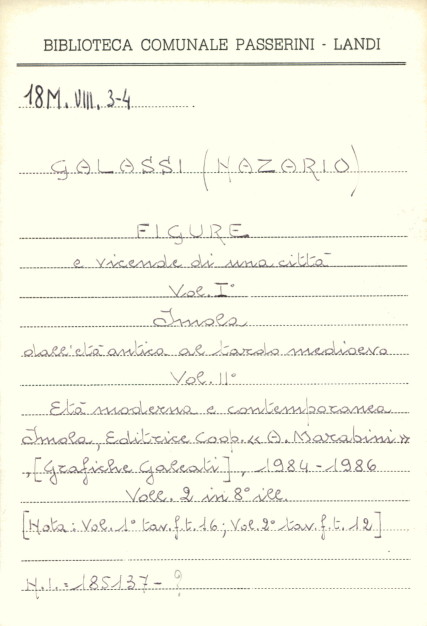 BIBLIOTECA COMUNALE PASSERINI - LANDI
18M. VIII. 3-4
GALASSI (NAZARIO)
FIGURE
e vicende di una città
Vol. I°
Imola
dall'età antica al tardo medioevo
Vol. II°
Età moderna e contemporanea
Imola, Editrice Coop. « A. Marabini »
, [Grafiche Galeati], 1984-1986
Voll. 2 in 8° ill.
[Nota: Vol. 1° tav. f. t. 16; Vol. 2° tav. f. t. 12]
N.I. = 185137 - ?